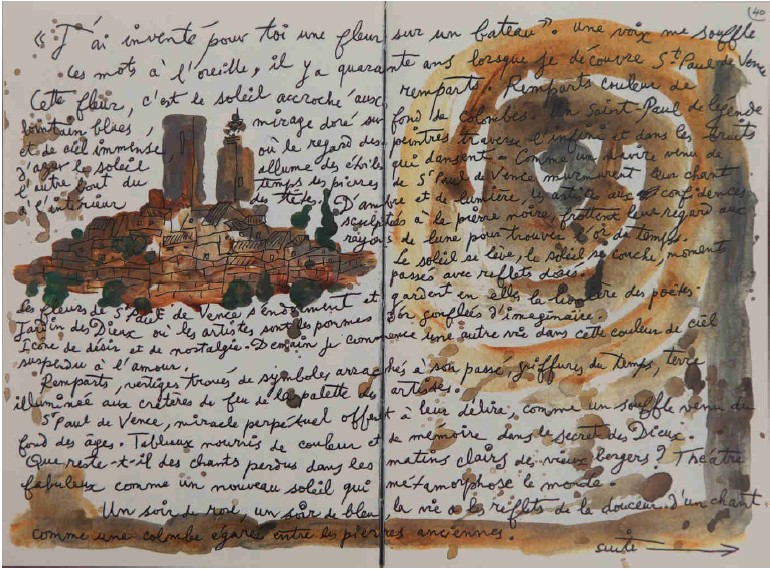 40
« J'ai inventé pour toi une fleur sur un bateau ». Une voix me souffle
ces mots à l'oreille, il y a quarante ans lorsque je découvre St Paul de Vence
Cette fleur, c'est le soleil accroché aux remparts. Remparts couleur de
lointain bleus, mirage doré sur fond de colombes. Un Saint-Paul de légende
et de ciel immense, où le regard des peintres traverse l'infini et dans les
le soleil allume des étoiles qui dansent - Comme un navire venu de
l'autre bout du temps les pierres de St Paul de Vence murmurent leur chant
à l'intérieur des têtes. D'ambre et de lumière, les artistes aux confidences
sculptées à la pierre noire, frottent leur regard aux
rayons de lune pour trouver l'or du temps.
Le soleil se lève, le soleil se couche, moments
passés avec reflets
Les fleurs de St Paul de Vence s'endorment et gardent en elles la lumière des poètes.
Jardin des Dieux où les artistes sont les pommes d'or gonflées d'imaginaire.
Icône de désir et de nostalgie. Demain je commence une autre vie dans cette couleur de ciel
suspendu à l'amour.
Remparts, vertiges troués de symboles arrachés à son passé, griffures du temps, terre
illuminée aux cratères de feu de la palette des artistes.
St Paul de Vence, miracle perpétuel offert à leur délire, comme un souffle venu du
fond des âges. Tableaux nourris de couleur et de mémoire dans le secret des Dieux.
Que reste-t-il des chants perdus dans les matins clairs de vieux bergers ? Théâtre
fabuleux comme un nouveau soleil qui métamorphose le monde.
Un soir de rose, un soir de bleu, la vie a les reflets de la douceur d'un chant
comme une colombe égarée entre les pierres anciennes.
suite →